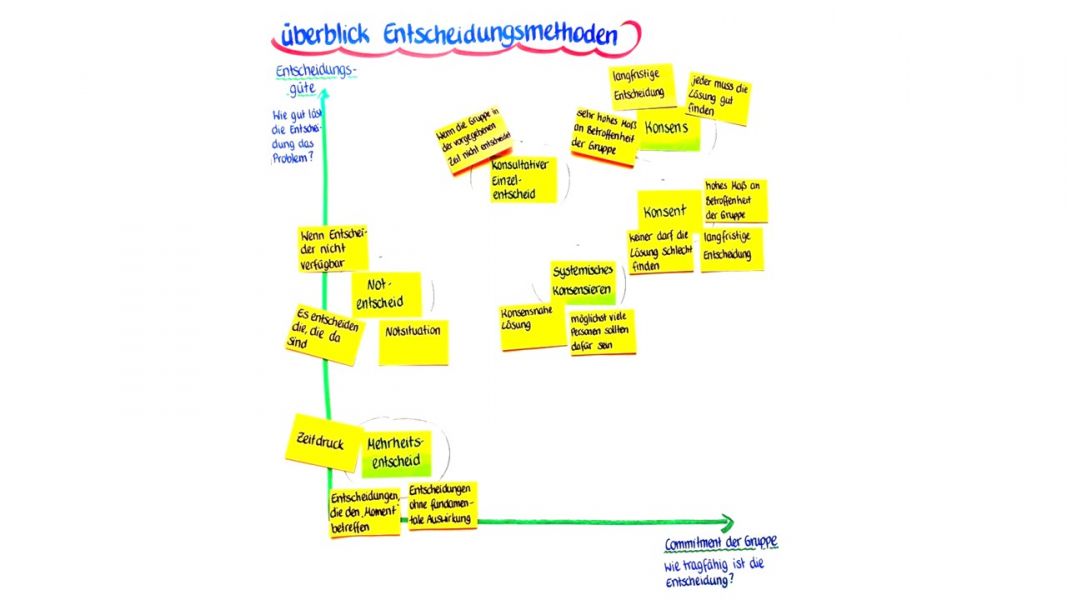 überblick Entscheidungsmethoden
Entscheidungs-
güte
Wie gut löst
die Entschei-
dung das
Problem?
langfristige
Entscheidung
jeder muss die
Lösung gut
finden
sehr hohes Maß
an Betroffenheit
der Gruppe
Konsens
Wenn die Gruppe in
der vorgegebenen
Zeit nicht entscheidet
Konsultativer
Einzel-
entscheid
Konsent
hohes Maß an
Betroffenheit
der Gruppe
keiner darf die
Lösung schlecht
finden
langfristige
Entscheidung
Wenn Entschei-
der nicht
verfügbar
Not-
entscheid
Es entscheiden
die, die da
sind
Notsituation
Systemisches
Konsensieren
Konsensnahe
Lösung
möglichst viele
Personen sollten
dafür sein
Zeitdruck
Mehrheits-
entscheid
Entscheidungen,
die den Moment
betreffen
Entscheidungen
ohne fundamen-
tale Auswirkung
Commitment der Gruppe
Wie tragfähig ist die
Entscheidung?